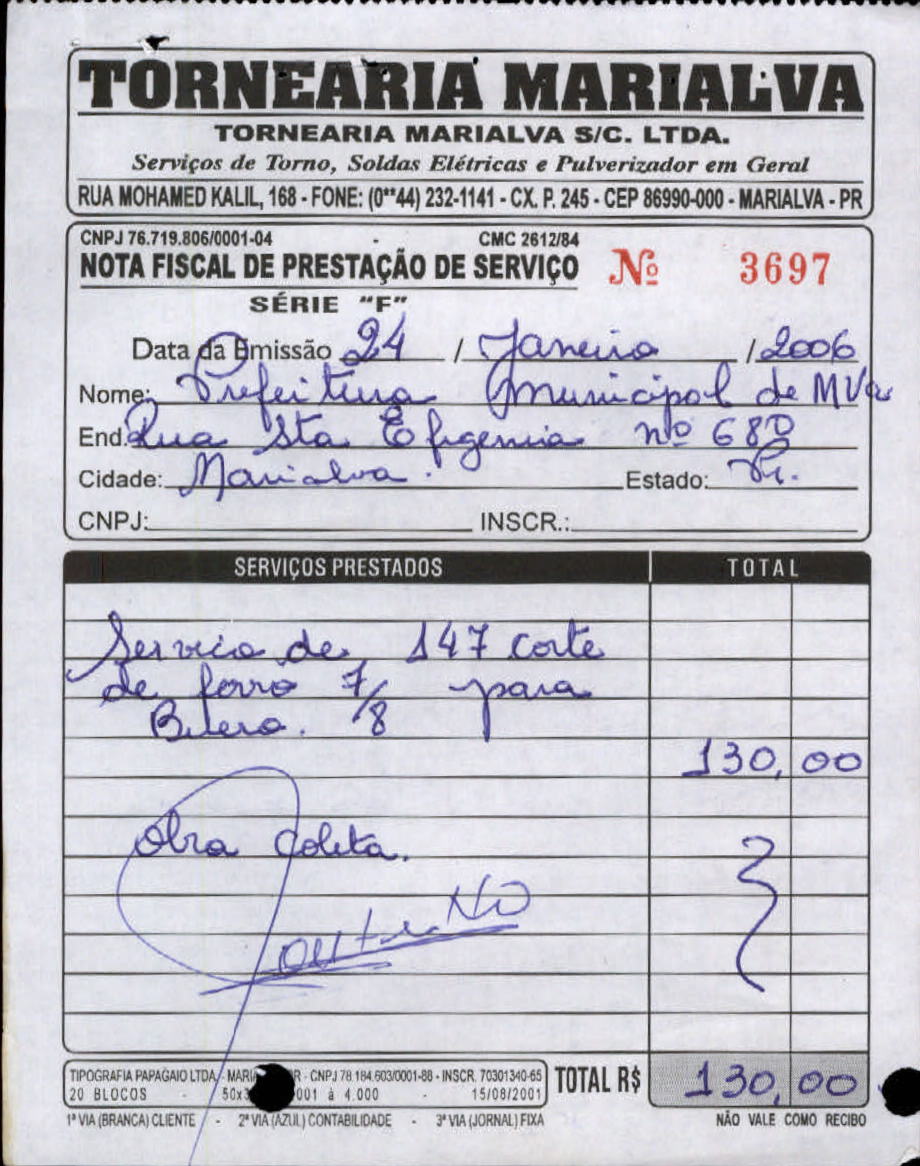 TORNEARIA MARIALVA
TORNEARIA MARIALVA S/C. LTDA.
Serviços de Torno, Soldas Elétricas e Pulverizador em Geral
RUA MOHAMED KALIL, 168 - FONE: (0**44) 232-1141 - CX. P. 245 - CEP 86990-000 - MARIALVA - PR
CNPJ 76.719.806/0001-04 CMC 2612/84
NOTA FISCAL DE PRESTAÇÃO DE SERVIÇO Nº 3697
SÉRIE "F"
Data da Emissão 24 / Janeiro / 2006
Nome: Prefeitura Municipal de MVa
End. Rua Sta Efigenia nº 680
Cidade: Marialva. Estado: Pr.
CNPJ: INSCR.:
SERVIÇOS PRESTADOS TOTAL
Servico de 147 corte
de ferro 7/8 para
130,00
Obra Coleta.
TIPOGRAFIA PAPAGAIO LTDA - CNPJ 78.184.603/0001-88 - INSCR. 70301340-65
20 BLOCOS - 001 à 4.000 - 15/08/2001
TOTAL R$ 130,00
1ª VIA (BRANCA) CLIENTE - 2ª VIA (AZUL) CONTABILIDADE - 3ª VIA (JORNAL) FIXA NÃO VALE COMO RECIBO